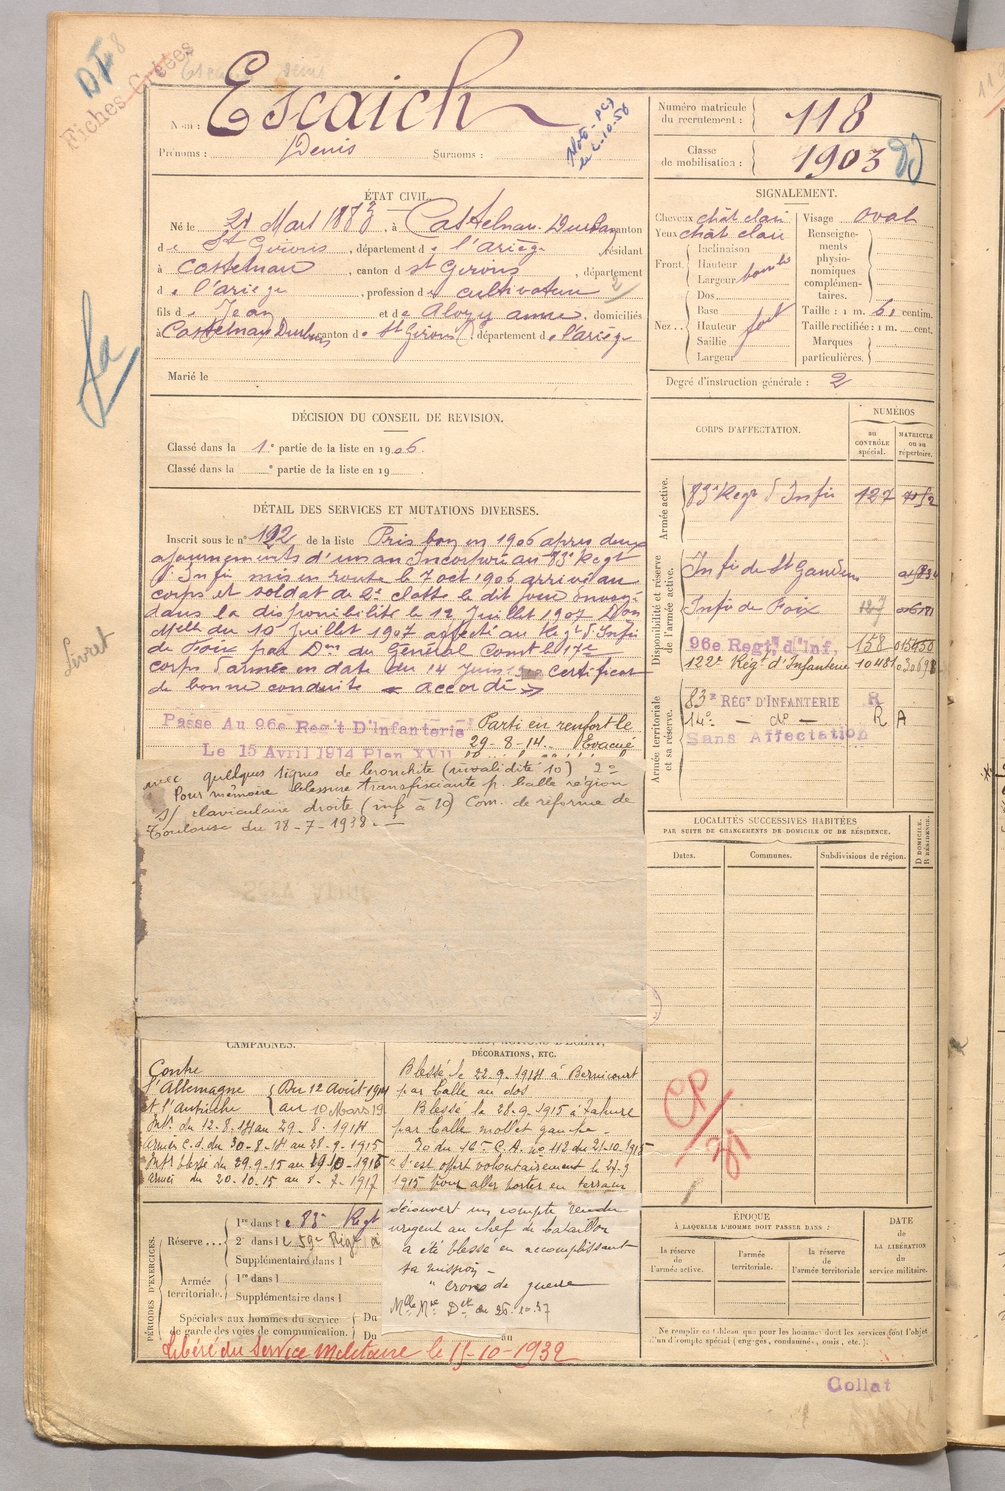 Fiches Créées
Nom : Escaich
Prénoms : Denis Surnoms :
Numéro matricule du recrutement : 118
Classe de mobilisation : 1903
ÉTAT CIVIL.
Né le 21 Mars 1883, à Castelnau-Durban, canton
de St Girons, département de l'ariège, résidant
à Castelnau, canton de St Girons, département
de l'ariège, profession de cultivateur
fils de Jean et de anne, domiciliés
à Castelnau Durban, canton de St Girons, département de l'ariège
Marié le
SIGNALEMENT.
Cheveux chât clair
Yeux chât clair
Front. Inclinaison
Hauteur
Largeur bombé
Nez.. Dos
Base
Hauteur fort
Saillie
Largeur
Visage oval
Renseignements physionomiques complémentaires.
Taille : 1 m. 61 centim.
Taille rectifiée : 1 m. cent.
Marques particulières.
Degré d'instruction générale : 2
DÉCISION DU CONSEIL DE REVISION.
Classé dans la 1e partie de la liste en 1906.
Classé dans la e partie de la liste en 19
DÉTAIL DES SERVICES ET MUTATIONS DIVERSES.
Inscrit sous le n° 192 de la liste Pris bon en 1906 après deux
ajournements d'un an incorporé au 83e Regt
d'Infie mis en route le 7 oct 1906 arrivé au
corps et soldat de 2e classe le dit jour envoyé
dans la disponibilité le 12 Juillet 1907 Don
Melle du 10 Juillet 1907 affecté au Regt d'Infie
de Foix par Don du Général Comt le 17e
corps d'armée en date du 14 Juin certificat
de bonne conduite « accordé »
Passé Au 96e Regt D'Infanterie
Le 15 Avril 1914 Plan XVII
Parti en renfort le
29-8-14. Evacué
avec quelques signes de bronchite (invalidité 10) 2°
Pour mémoire blessure transfixiante p. balle région
s/ claviculaire droite (inf à 10) Com. de réforme de
Toulouse du 28-7-1938.
CORPS D'AFFECTATION.
NUMÉROS
au CONTRÔLE spécial.
MATRICULE ou au répertoire.
Armée active.
83e Regt d'Infie 127
Disponibilité et réserve de l'armée active.
Infie de St Gaudens
Infie de Foix
96e Regt, d'Inf, 158
122e Régt d'Infanterie
Armée territoriale et sa réserve.
83e RÉGT D'INFANTERIE R
14e - d° - R A
Sans Affectation
LOCALITÉS SUCCESSIVES HABITÉES
PAR SUITE DE CHANGEMENTS DE DOMICILE OU DE RÉSIDENCE.
Dates. Communes. Subdivisions de région. D DOMICILE. R RÉSIDENCE.
CAMPAGNES.
Contre
l'Allemagne Du 12 Août 1914
et l'Autriche au 10 Mars 19
Intr. du 12-8-14 au 29-8-1914
Armées c.d. du 30-8-14 au 28-9-1915
Intr blessé du 29-9-15 au 19-10-1915
Armées du 20-10-15 au 8-7-1917
BLESSURES, ACTIONS D'ÉCLAT, DÉCORATIONS, ETC.
Blessé le 22-9-1914 à Bernicourt
par balle au dos
Blessé le 28-9-1915 à Tahure
par balle mollet gauche
"S'est offert volontairement le 27-9
1915 pour aller porter en terrain
découvert un compte rendu
urgent au chef de bataillon
a été blessé en accomplissant
sa mission -
" croix de guerre
PÉRIODES D'EXERCICES.
Réserve... 1re dans le 83e Regt
2e dans le 59e Régt
Supplémentaire dans l
Armée territoriale. 1re dans l
Supplémentaire dans l
Spéciales aux hommes du service de garde des voies de communication. Du
Du au
Libéré du Service Militaire le 15-10-1932
ÉPOQUE
À LAQUELLE L'HOMME DOIT PASSER DANS :
la réserve de l'armée active.
l'armée territoriale.
la réserve de l'armée territoriale
DATE DE LA LIBÉRATION du service militaire.
Ne remplir ce tableau que pour les hommes dont les services font l'objet
d'un compte spécial (engagés, condamnés, omis, etc.).
Livret
CP
Collat